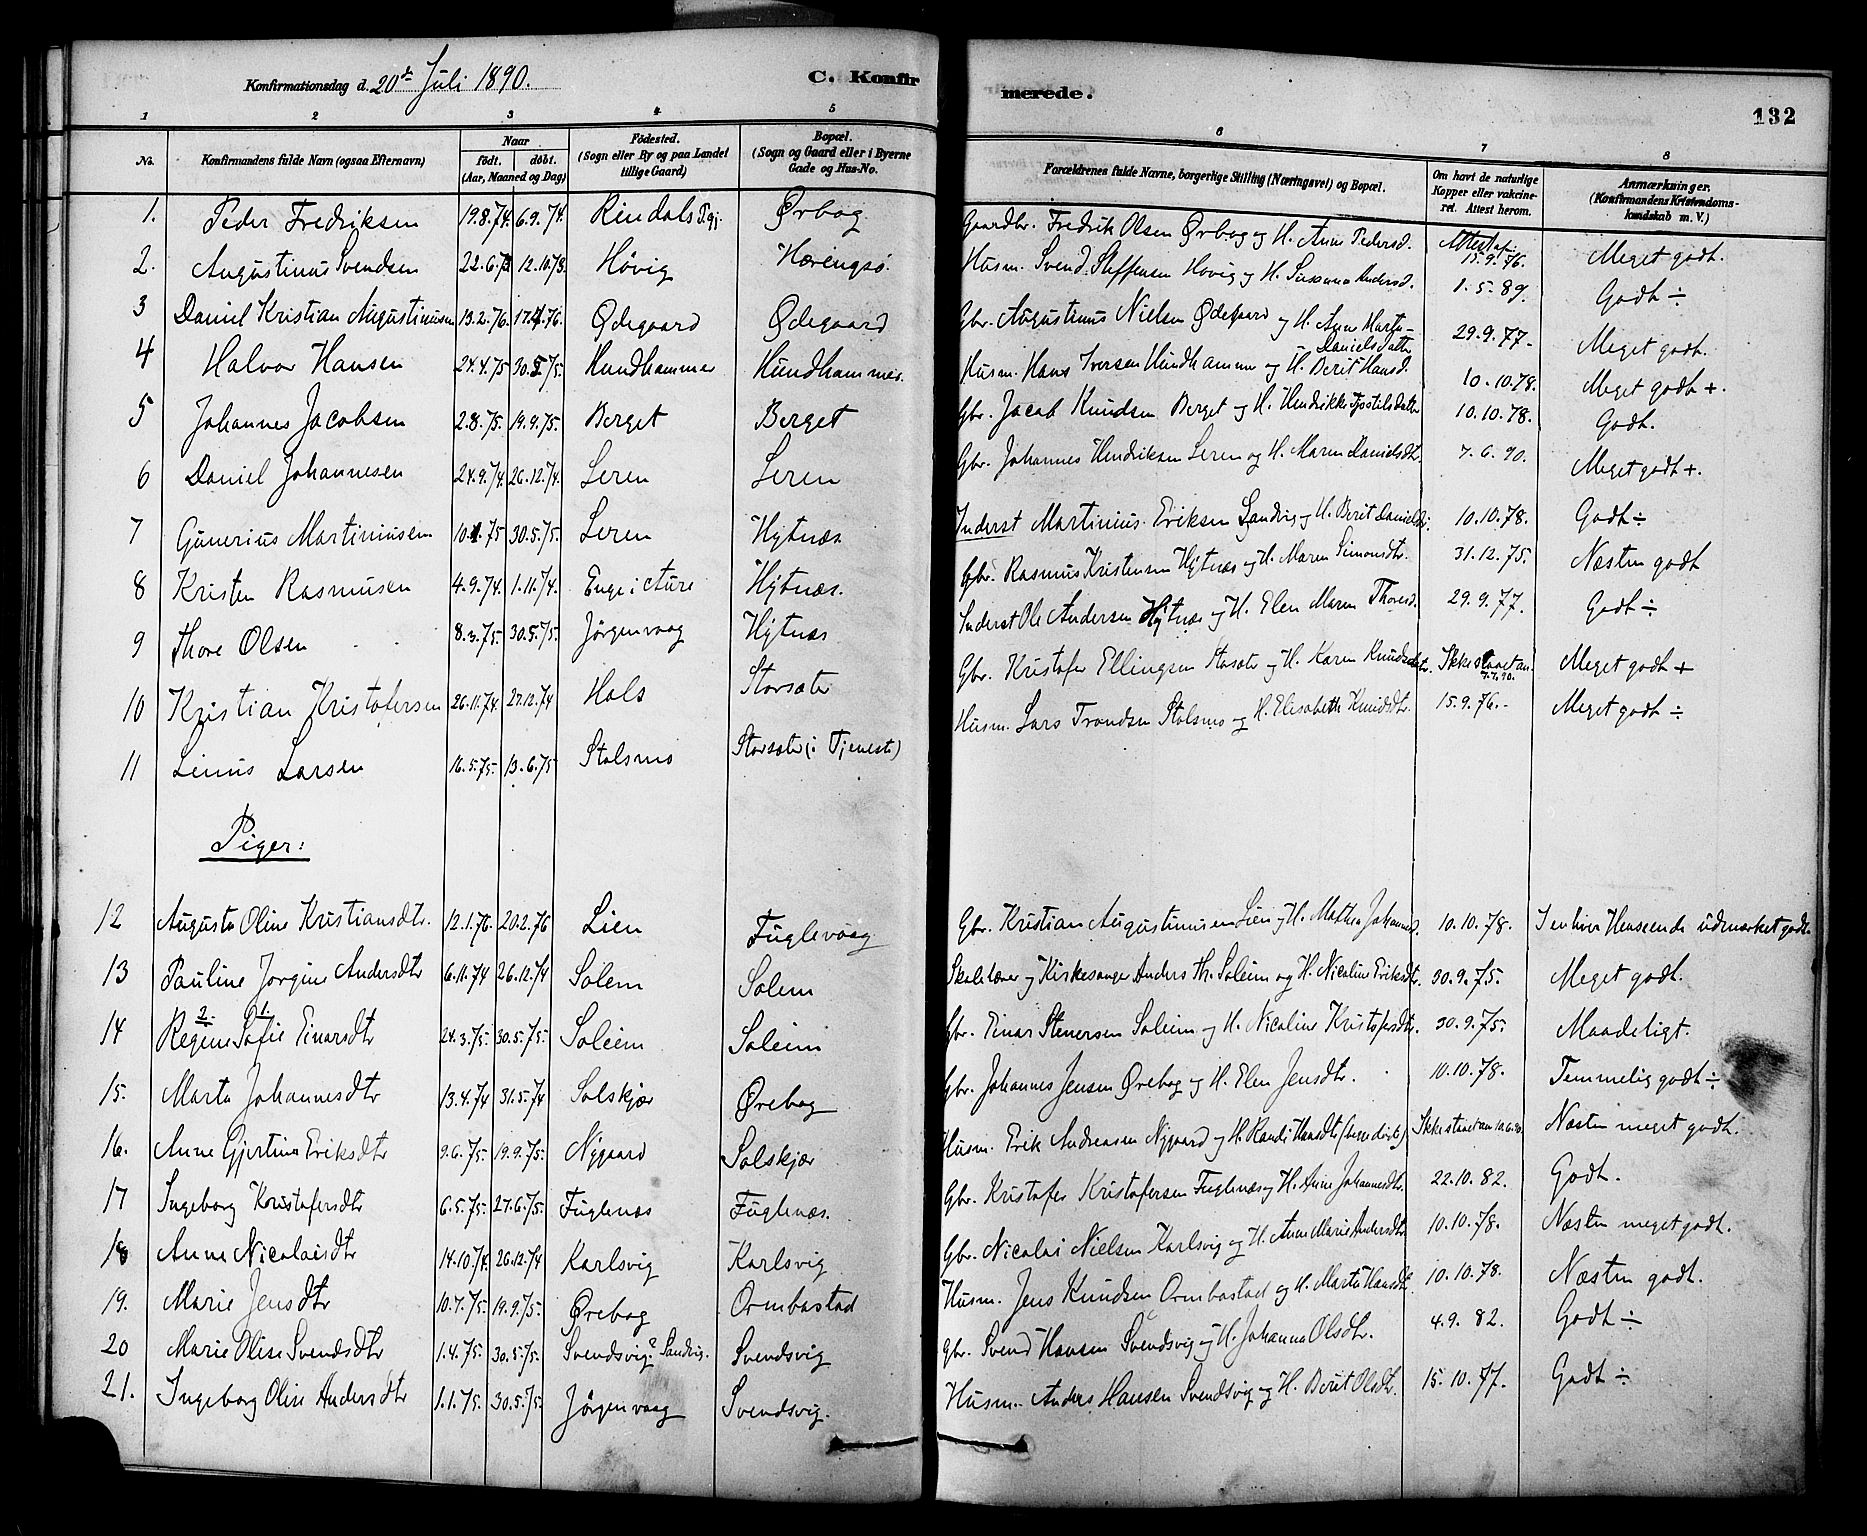 Konfirmationsdag d. 20de Juli 1890. C. Konfirmerede. 132
1 2 3 4 5 6 7 8
No. Konfirmandens fulde Navn (ogsaa Efternavn) Naar født. døbt. (Aar, Maaned og Dag) Fødested. (Sogn eller By og paa Landet tillige Gaard) Bopæl. (Sogn og Gaard eller i Byerne Gade og Hus-No. Forældrenes fulde Navne, borgerlige Stilling (Næringsvei) og Bopæl. Om havt de naturlige Kopper eller vakcineret. Attest herom. Anmærkninger. (Konfirmandens Kristendomskundskab m. V.)
1. Peder Fredriksen 19.8.74. 6.9.74. Rindals Pgj. Ørbog Gaardbr. Fredrik Olsen Ørbog og H. Anne Pedersd. Attest af 15.9.76. Meget godt.
2. Augustinus Svendsen 22.6.73 12.10.73. Høvig Hæringsø. Husm. Svend Steffensen Hovig og H. Susanna Andersd. 1.5.89. Godt ÷
3 Daniel Kristian Augustinusen 13.2.76. 17.4.76. Ødegaard Ødegaard Gbr. Augustinus Nielsen Ødegaard og H. Anne Marta Danielsdatter 29.9.77. Meget godt.
4 Halvor Hansen 24.4.75 30.5.75. Hundhammer Hundhammer. Husm. Hans Iversen Hundhammer og H. Berit Hansd. 10.10.78. Meget godt +.
5 Johannes Jacobsen 2.8.75. 19.9.75. Berget Berget Gbr. Jacob Knudsen Berget og H. Hendrikke Tjostilsdatter 10.10.78. Godt.
6 Daniel Johannesen 24.9.74. 26.12.74. Leren Leren Gbr. Johannes Hendriksen Leren og H. Maren Danielsdtr. 7.6.90. Meget godt +.
7 Gunerius Martinusen 10.1.75 30.5.75. Leren Hytnæs Inderst Martinius Eriksen Sandvig og H. Berit Danielsdtr. 10.10.78. Godt ÷
8 Kristen Rasmusen 4.9.74. 1.11.74. Enge i Aure Hytnæs. Gbr. Rasmus Kristensen Hytnæs og H. Maren Simonsdtr. 31.12.75. Næsten godt
9 Thore Olsen 8.3.75. 30.5.75. Jörgenvaag Hytnæs Inderst Ole Andersen Hytnæs og H. Elen Maren Thoresd. 29.9.77. Godt ÷
10 Kristian Kristofersen 26.11.74. 27.12.74 Hals Storsæter Gbr. Kristofer Ellingsen Stosæter og H. Karen Knudsdatter. Ikke slaaet an 7.7.90. Meget godt +
11 Linus Larsen 16.5.75. 13.6.75 Stolsmo Storsæter (i Tjeneste) Husm. Lars Trondsen Stolsmo og H. Elisabeth Knudsdtr. 15.9.76. Meget godt ÷
Piger:
12 Augusta Oline Kristiansdtr. 12.1.76. 20.2.76 Lien Fuglevaag Gbr. Kristian Augustinusen Lien og H. Mathea Johannesd. 10.10.78. I enhver Henseende udmærket godt.
13 Pauline Jorgine Andersdtr 6.11.74 26.12.74 Solem Solem Skolelærer og Kirkesanger Anders Th. Soleim og H. Nicoline Eriksdtr. 30.9.75. Meget godt.
2. 1.
14 Regine Sofie Einarsdtr 24.3.75. 30.5.75. Soleim Soleim Gbr. Einar Stenersen Soleim og H. Nicoline Kristofersdtr. 30.9.75. Maadeligt.
15. Marta Johannesdtr 13.4.74 31.5.74 Solskjær Ørebog Gbr. Johannes Jensen Ørebog og H. Elen Jensdtr. 10.10.78. Temmelig godt ÷
16. Anne Gjertine Eriksdtr 9.6.75. 19.9.75. Nygaard Solskjær Husm. Erik Andreasen Nygaard og H. Randi Hansdtr (begge døde) Ikke slaaet an 10.6.90. Næsten meget godt.
17 Ingeborg Kristofersdtr 6.5.75. 27.6.75. Fuglenæs Fuglenæs. Gbr. Kristofer Kristofersen Fuglenæs og H. Anne Johannesdtr. 22.10.82. Godt.
18 Anne Nicolaisdtr 14.10.74. 26.12.74 Karlsvig Karlsvig Gbr. Nicolai Nielsen Karlsvig og H. Anne Marie Andersdtr. 10.10.78. Næsten meget godt.
19. Marie Jensdtr 10.7.75. 19.9.75. Ørebog Ormbostad Husm. Jens Knudsen Ormbostad og H. Marta Hansdtr. 10.10.78. Næsten godt.
20 Marie Oline Svendsdtr 1.4.75. 30.5.75. Svendsvig? Sandvig. Svendsvig Gbr. Svend Hansen Svendsvig og H. Johanna Olsdtr. 4.9.82. Godt ÷
21. Ingeborg Oline Andersdtr 1.1.75. 30.5.75. Jörgenvaag Svendsvig. Husm. Anders Hansen Svendsvig og H. Berit Olsdtr. 15.10.77. Godt ÷